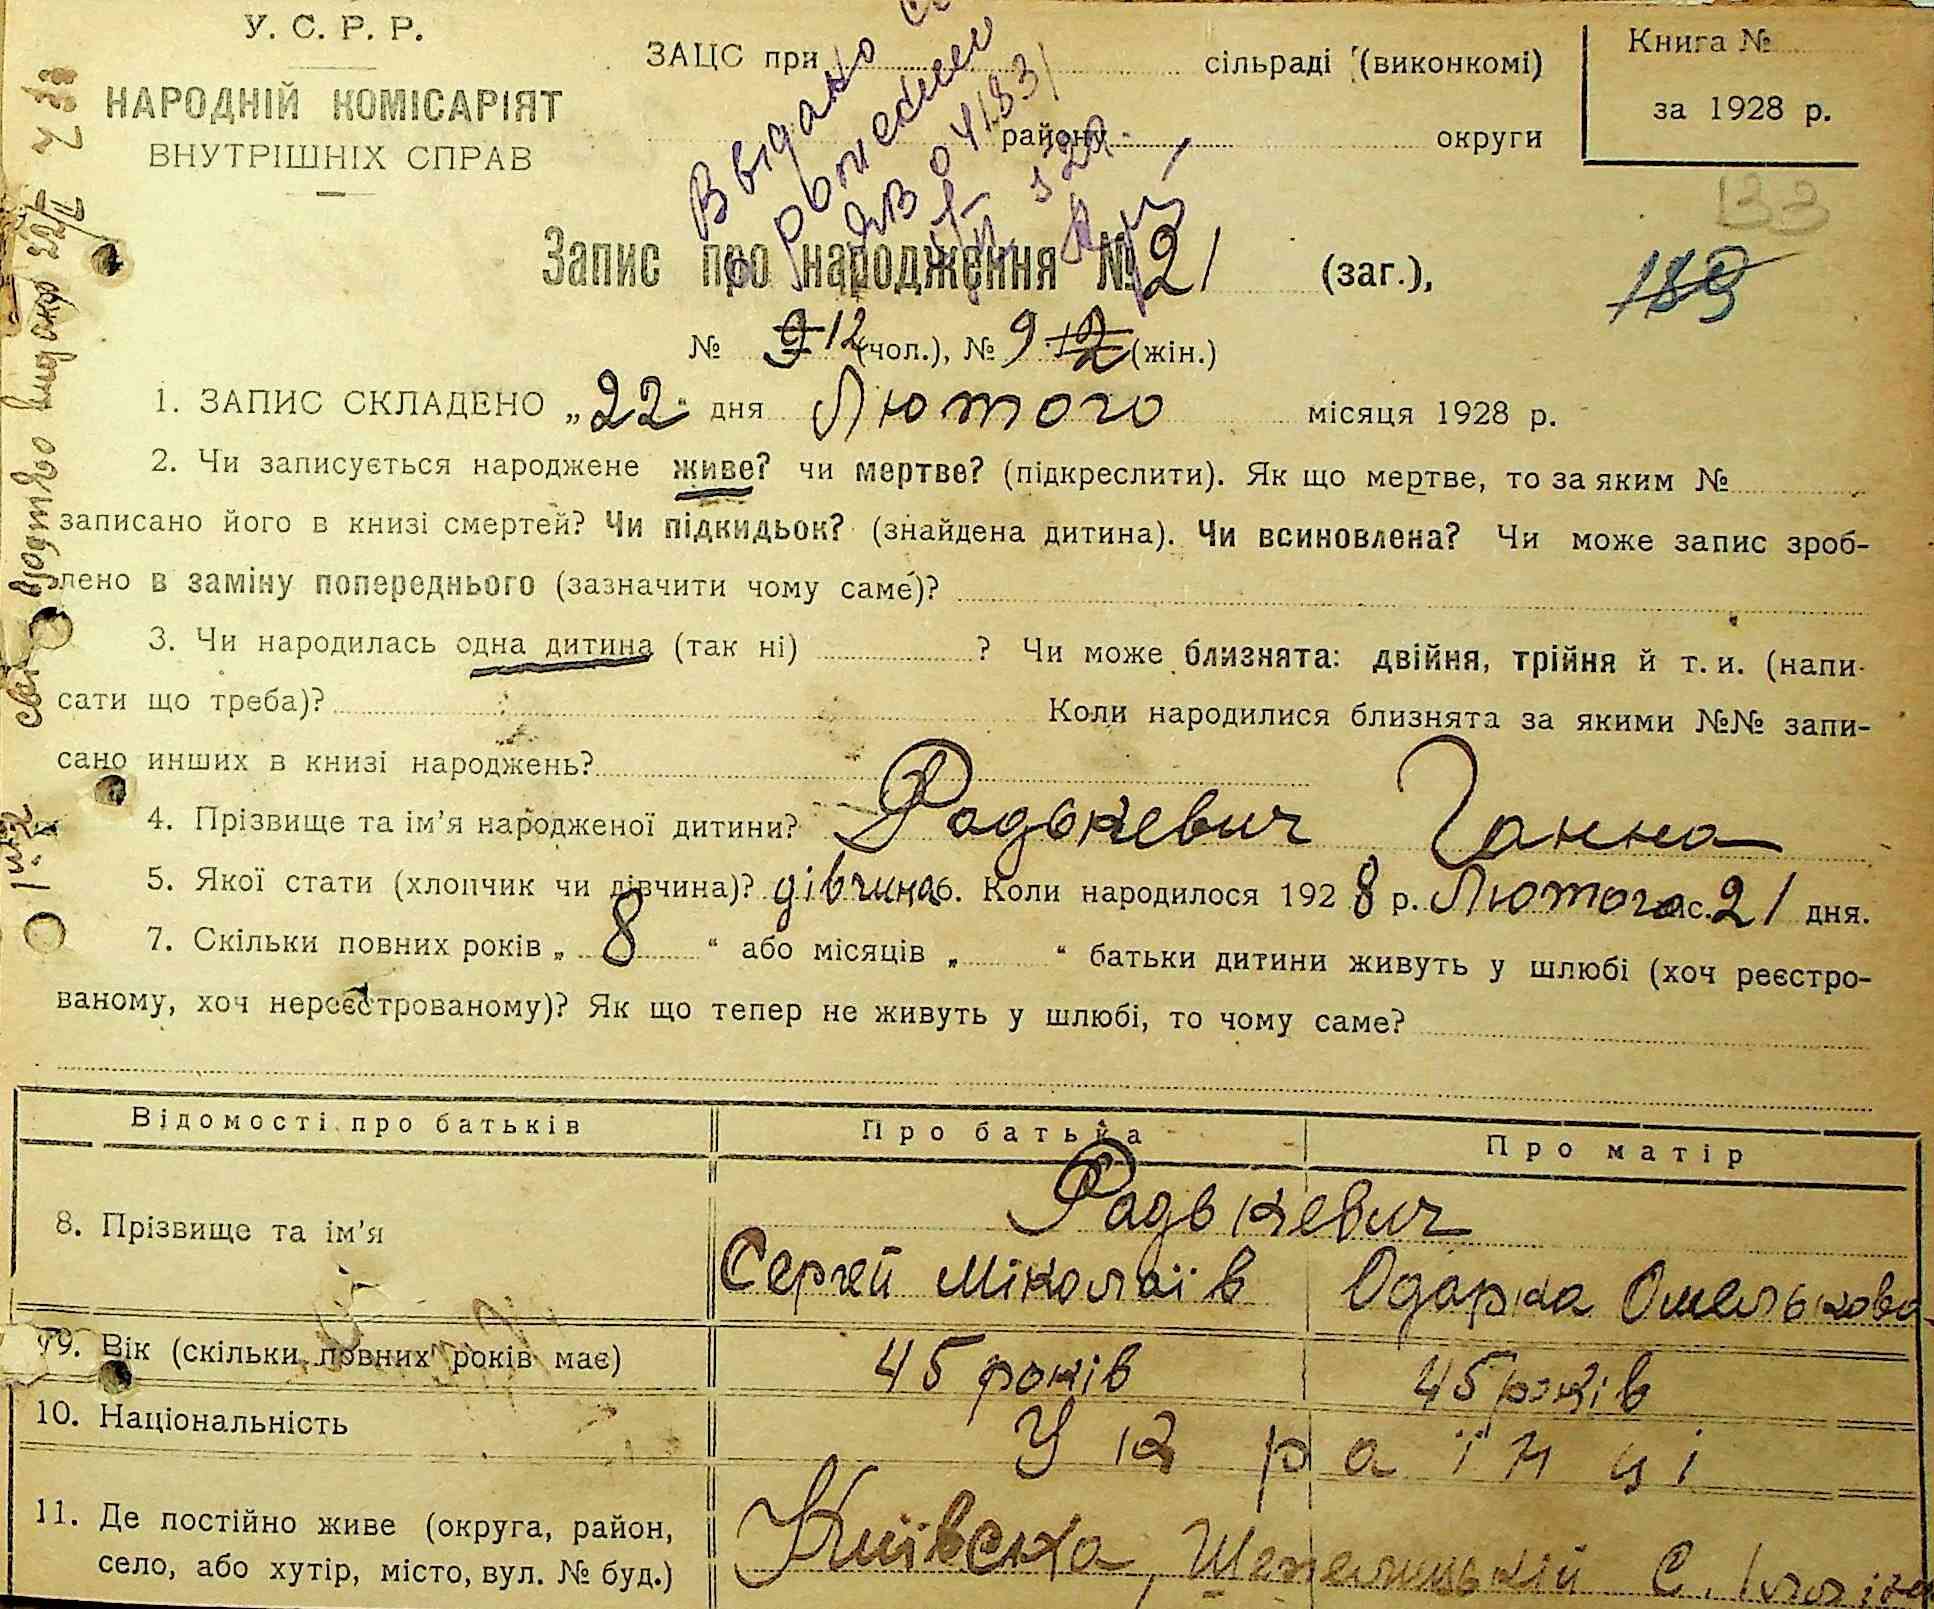 У. С. Р. Р.
НАРОДНІЙ КОМІСАРІЯТ
ВНУТРІШНІХ СПРАВ
ЗАЦС при сільраді (виконкомі)
району округи
Книга №
за 1928 р.
Видано
133
189
Запис про народження № 21 (заг.),
№ 9 12 (чол.), № 9 12 (жін.)
1. ЗАПИС СКЛАДЕНО „22“ дня Лютого місяця 1928 р.
2. Чи записується народжене живе? чи мертве? (підкреслити). Як що мертве, то за яким №
записано його в книзі смертей? Чи підкидьок? (знайдена дитина). Чи всиновлена? Чи може запис зроб-
лено в заміну попереднього (зазначити чому саме)?
3. Чи народилась одна дитина (так ні) ? Чи може близнята: двійня, трійня й т. и. (напи-
сати що треба)? Коли народилися близнята за якими №№ запи-
сано инших в книзі народжень?
4. Прізвище та ім'я народженої дитини? Радькевич Ганна
5. Якої стати (хлопчик чи дівчина)? дівчина 6. Коли народилося 1928 р. Лютого міс. 21 дня.
7. Скільки повних років „ 8 “ або місяців „ “ батьки дитини живуть у шлюбі (хоч реєстро-
ваному, хоч нереєстрованому)? Як що тепер не живуть у шлюбі, то чому саме?
Відомості про батьків Про батька Про матір
8. Прізвище та ім'я Радькевич
Сергей Міколаїв Одарка Омелькова
9. Вік (скільки повних років має) 45 років 45 років
10. Національність Українці
11. Де постійно живе (округа, район, село, або хутір, місто, вул. № буд.) Київска, Шепелицький с.